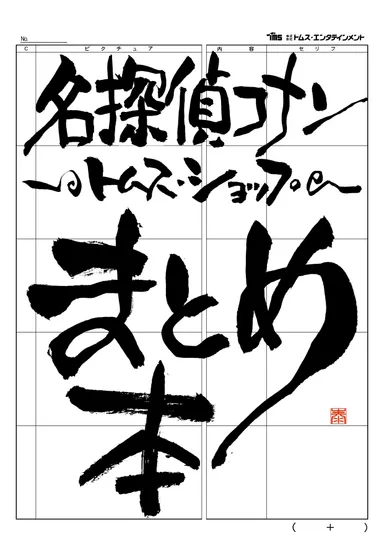 No.
tms 株式会社 トムス・エンタテインメント
C ピクチュア 内容 セリフ
名探偵コナン
〜トムス・ショップ〜
まとめ
本
( + )